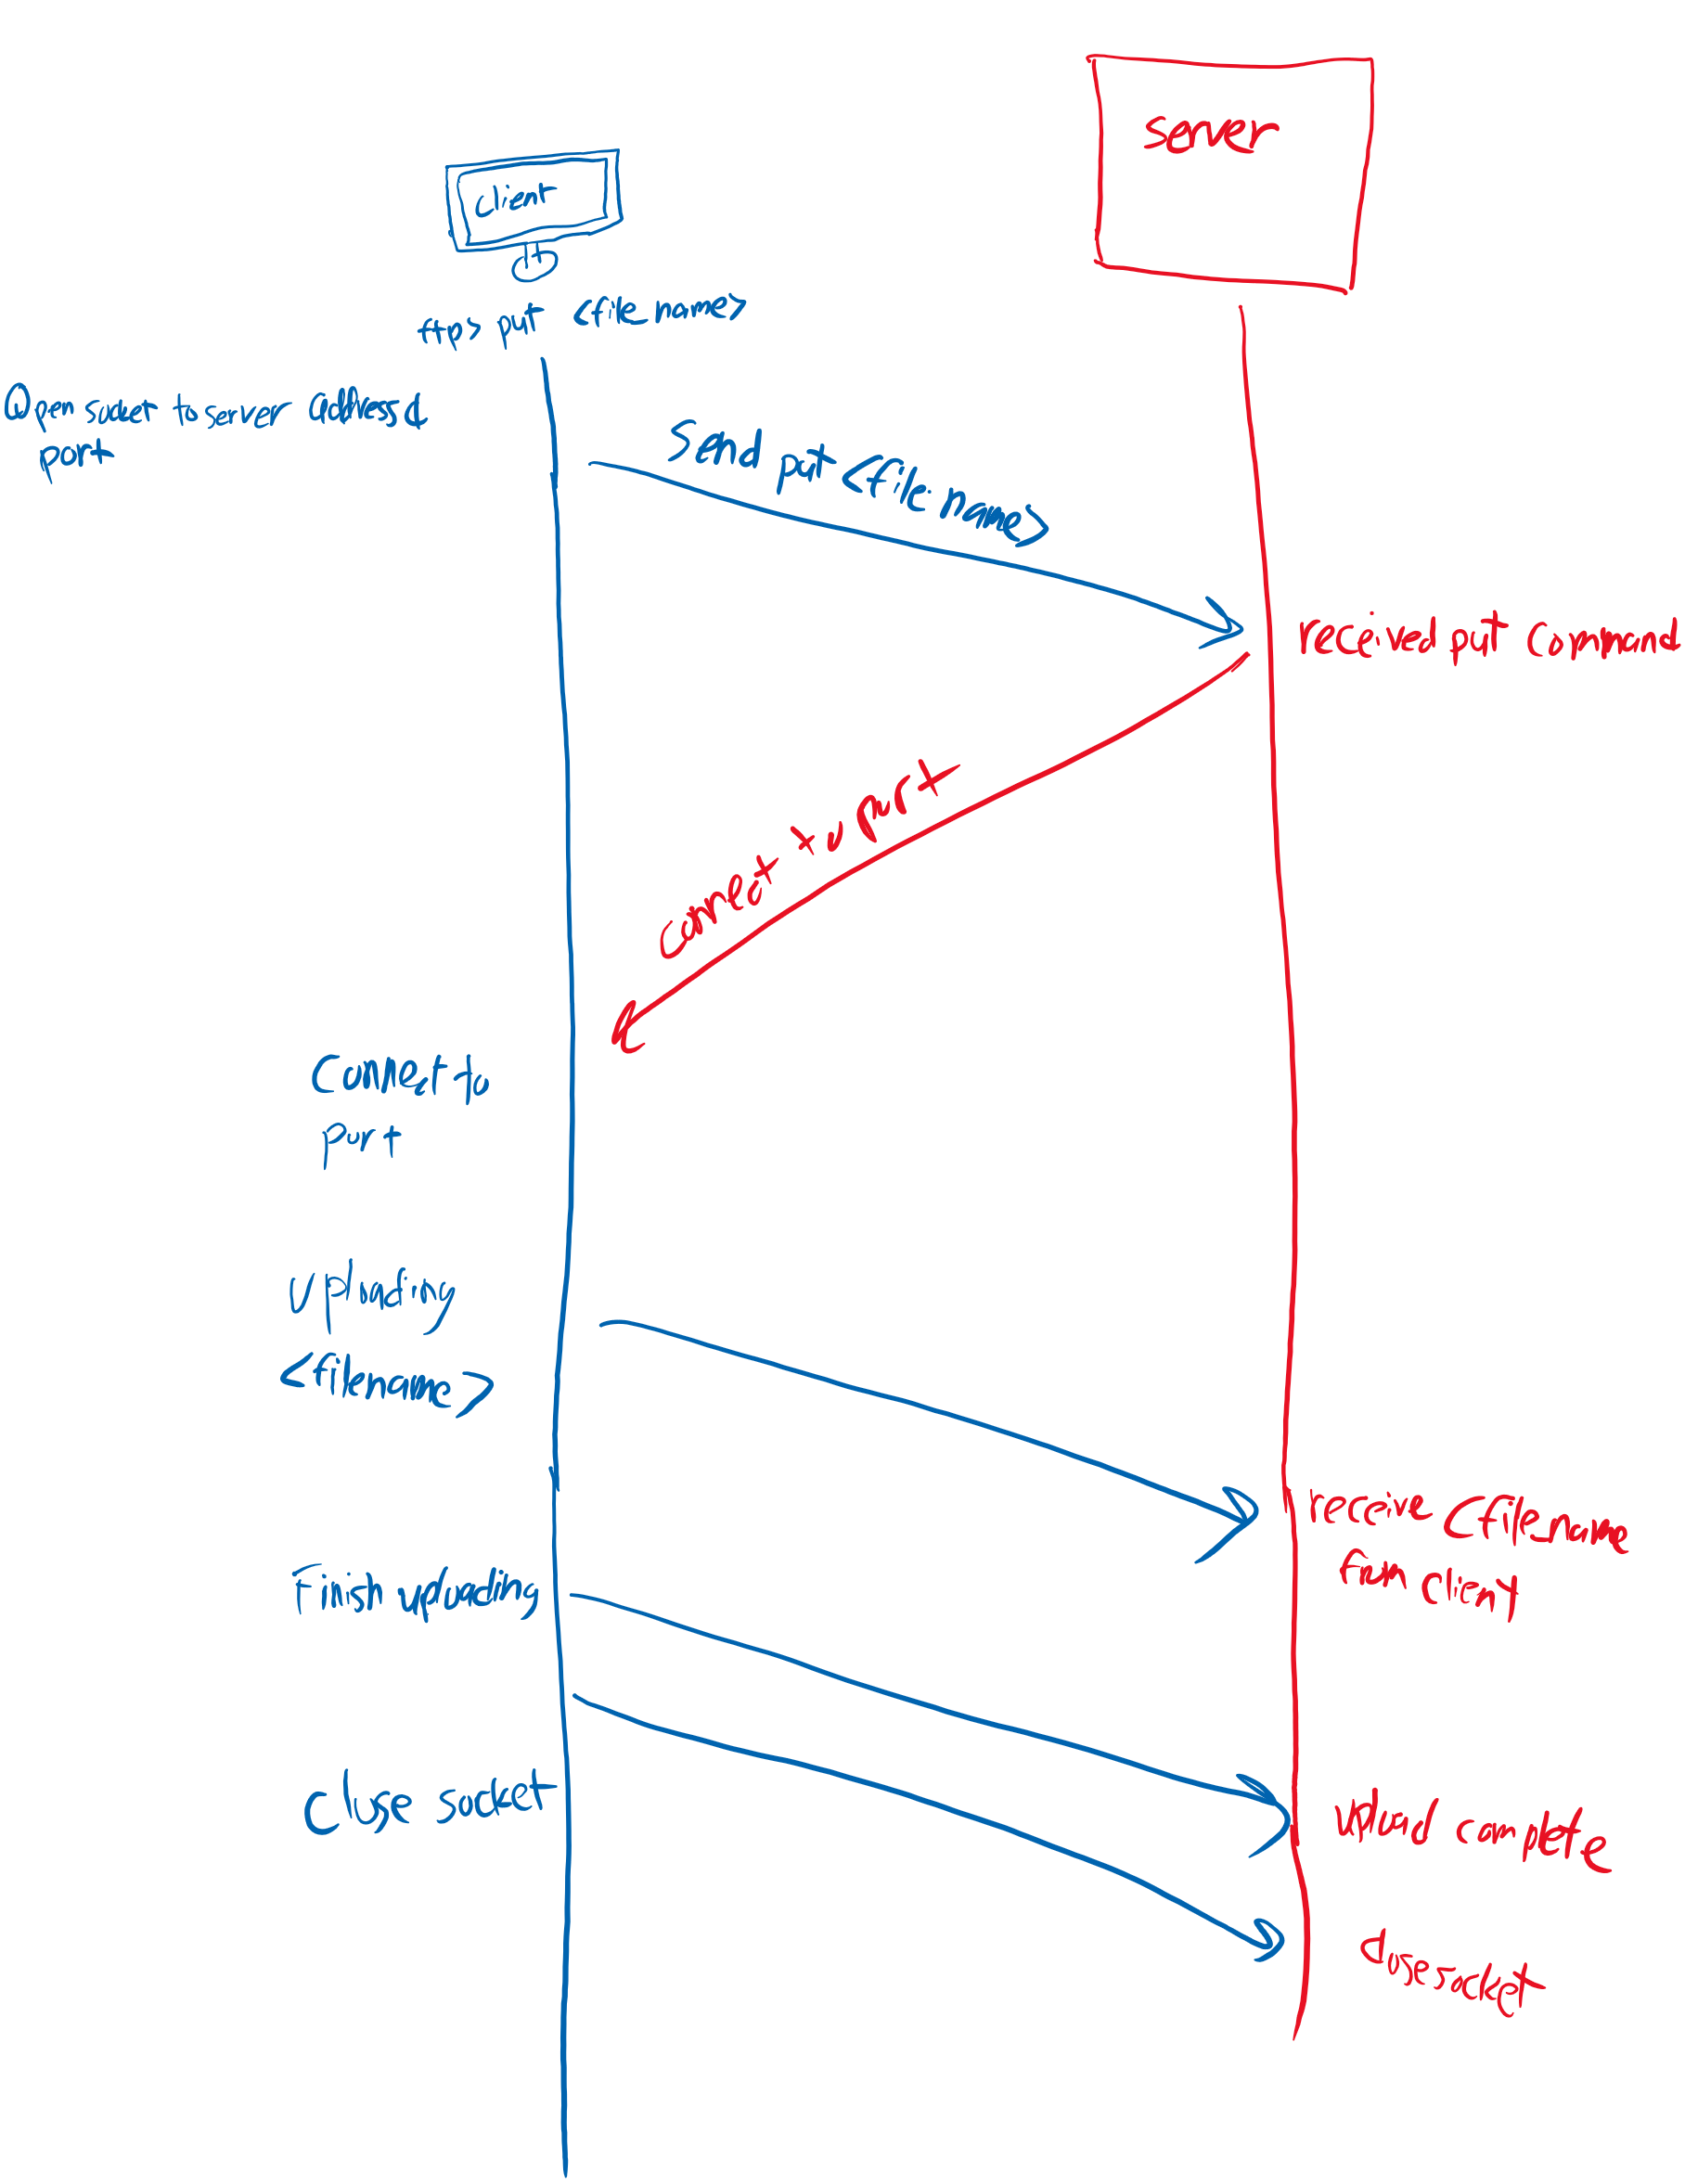 server
client
ftp> put <file_name>
Open socket to server address &
port
Send put <file name>
received put command
connect to port
Connect to
port
uploading
<filename>
receive <file_name
from client
Finish uploading
Close socket
upload complete
close socket